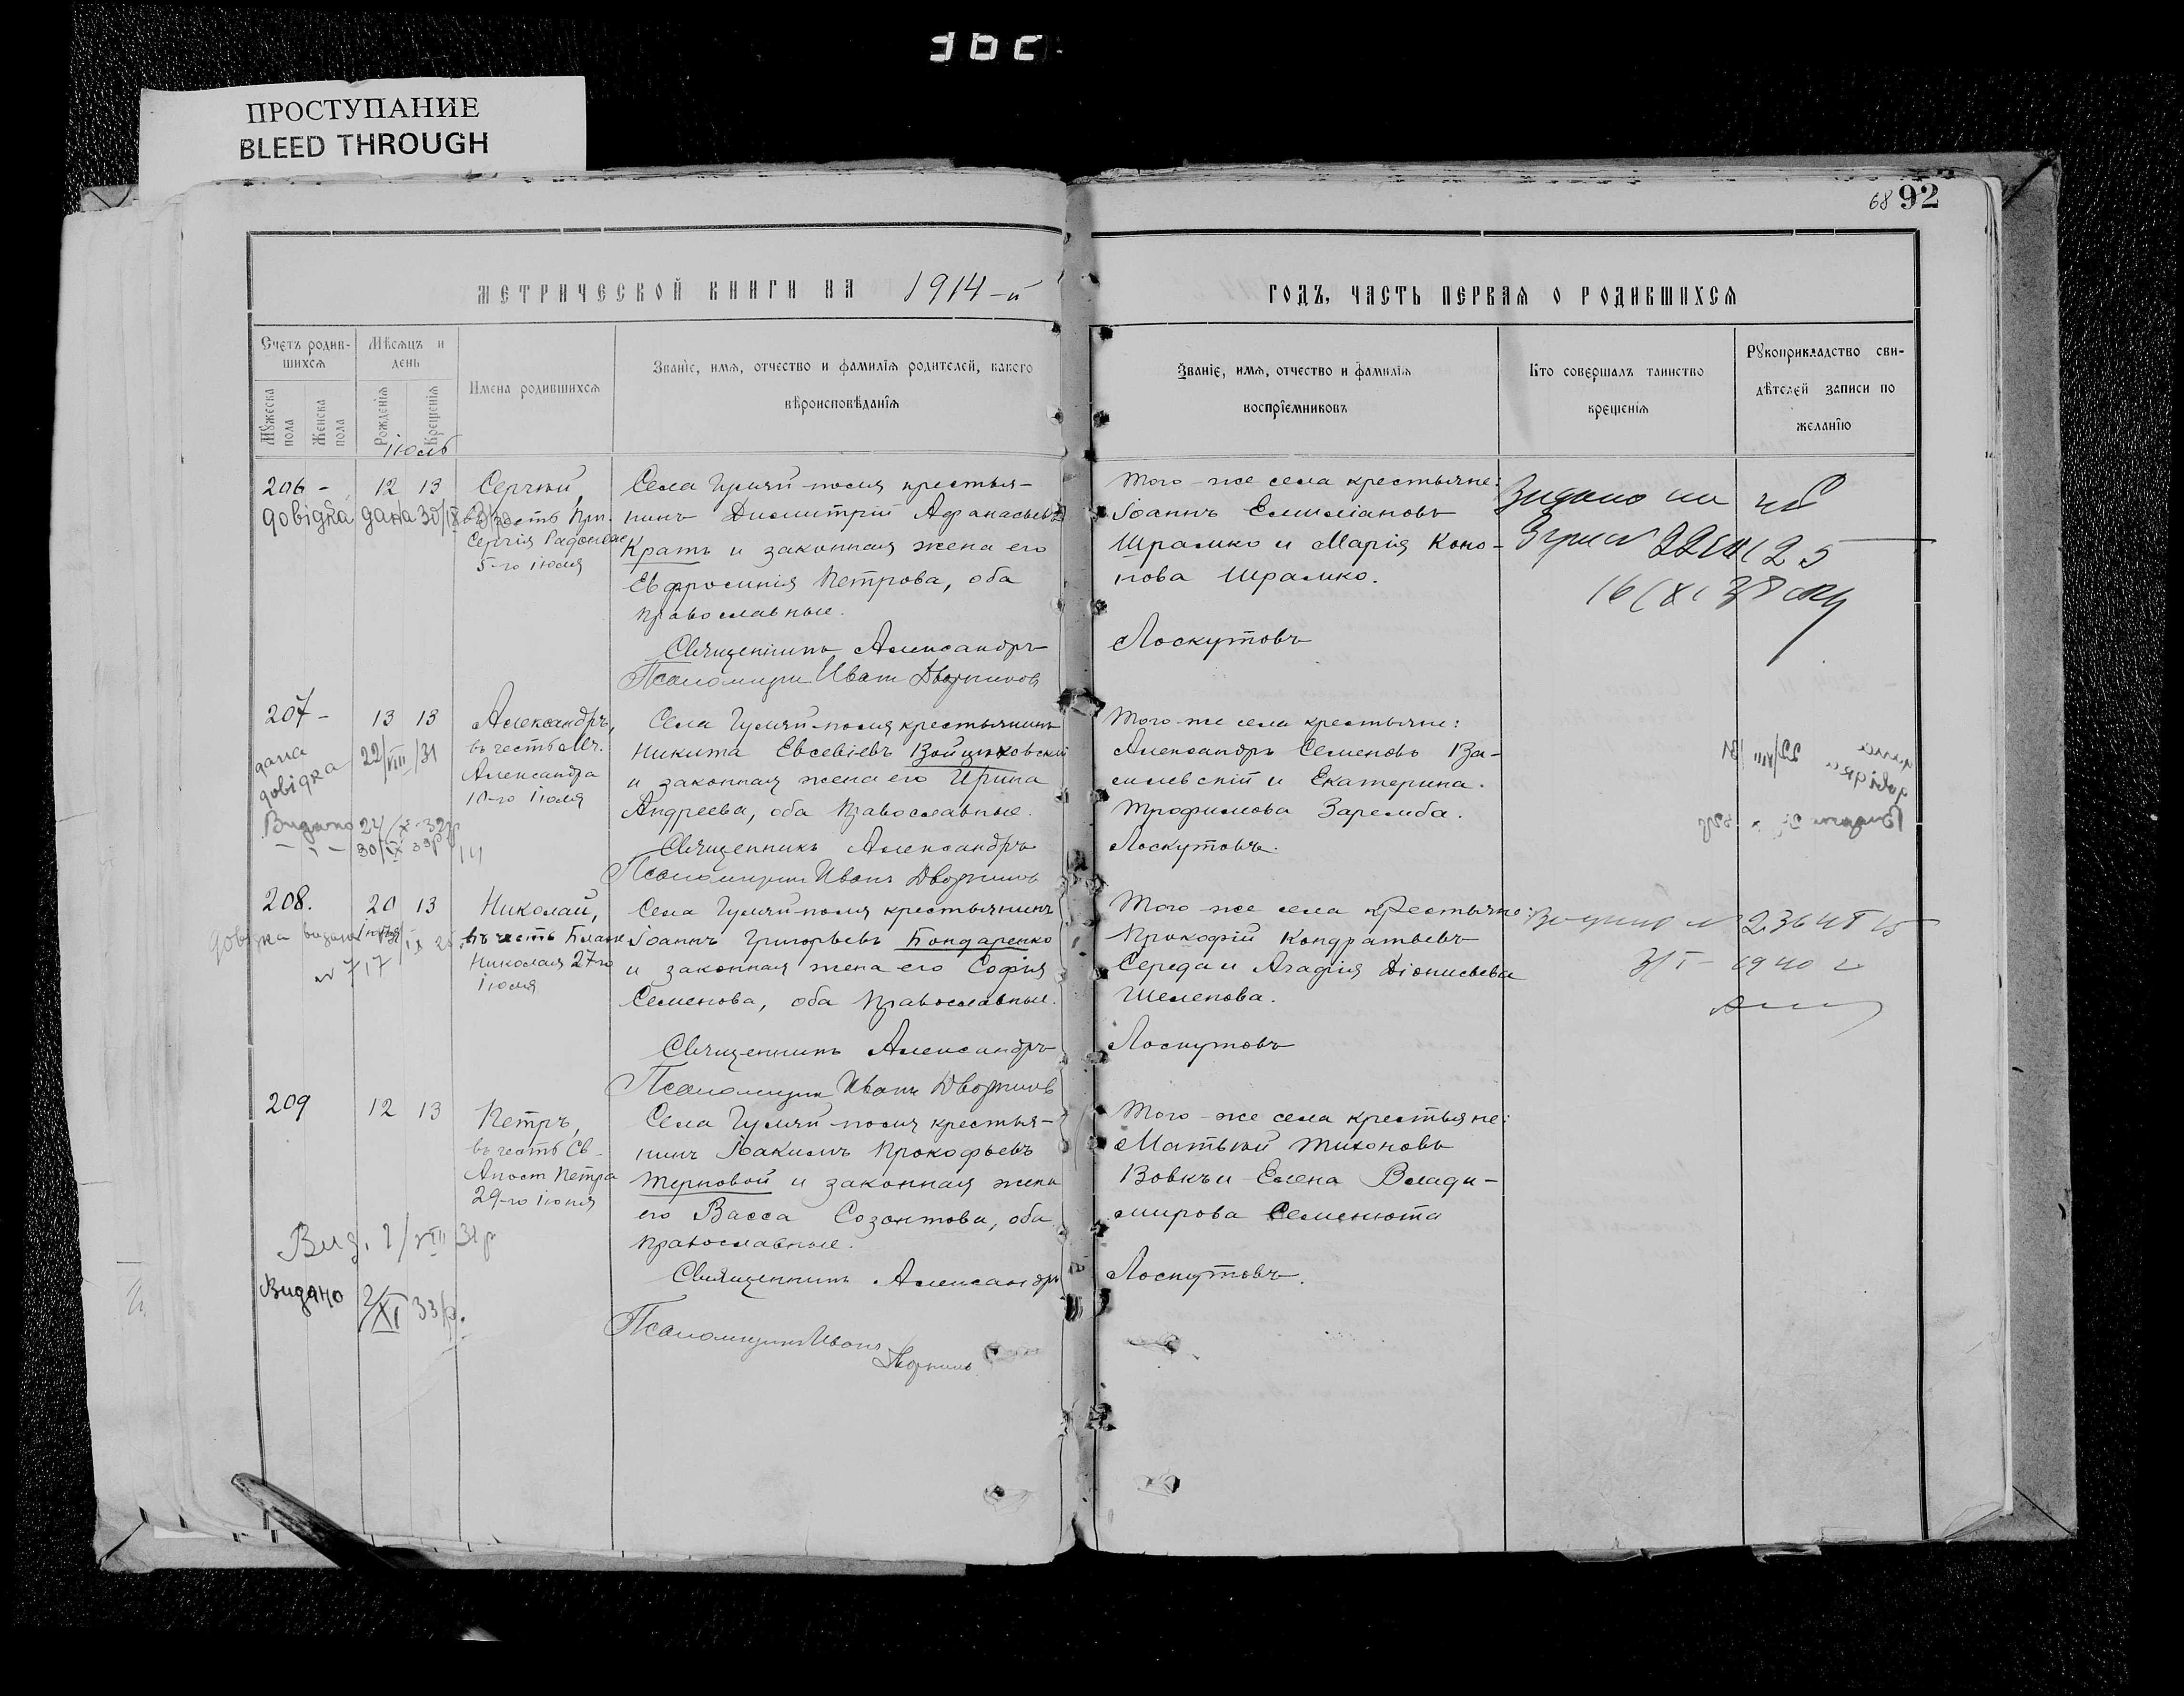 ПРОСТУПАНИЕ
BLEED THROUGH
68 92
МЕТРИЧЕСКОЙ КНИГИ НА 1914-й
ГОДЪ, ЧАСТЬ ПЕРВАЯ О РОДИВШИХСЯ
Счетъ родив-
шихся
Мужеска
пола
Женска
пола
Мѣсяцъ и
день
Рожденія
Крещенія
Имена родившихся
Званіе, имя, отчество и фамилія родителей, какого
вѣроисповѣданія
Званіе, имя, отчество и фамилія
воспріемниковъ
Кто совершалъ таинство
крещенія
Рукоприкладство сви-
дѣтелей записи по
желанію
Іюль
206 -
12 13
довідка дана 30/IX
Сергій,
въ честь Прп.
Сергія Радонеж
5-го Іюля
Села Гуляй-поля крестья-
нинъ Димитрій Афанасьевъ
Кратъ и законная жена его
Евфросинія Петрова, оба
православные.
Священникъ Александръ
Псаломщикъ Иванъ Дворниковъ
Того-же села крестьяне:
Іоаннъ Емиліановъ
Шрамко и Марія Коно-
нова Шрамко.
Лоскутовъ
207 -
13 13
дана
довідка
22/VIII/31
Видано 24/X 32р
30/IX 33р
Александръ,
въ честь Мч.
Александра
10-го Іюля
Села Гуляй-поля крестьянинъ
Никита Евсевіевъ Войциховскій
и законная жена его Ирина
Андреева, оба православные.
Священникъ Александръ
Псаломщикъ Иванъ Дворниковъ
Того-же села крестьяне:
Александръ Семеновъ Ва-
силевскій и Екатерина
Трофимова Заремба.
Лоскутовъ.
208.
20 13
довідка видана
№ 717
Николай,
въ честь Блаж
Николая 27-го
Іюля
Села Гуляй-поля крестьянинъ
Іоаннъ Григорьевъ Бондаренко
и законная жена его Софія
Семенова, оба православные.
Священникъ Александръ
Псаломщикъ Иванъ Дворниковъ
Того-же села крестьяне:
Прокофій Кондратьевъ
Середа и Агафія Діонисьева
Шелепова.
Лоскутовъ
3/I - 1940 г
209
12 13
Петръ,
въ честь Св.
Апост Петра
29-го Іюня
Вид. 2/VIII 31р
Видано 2/XI 33р.
Села Гуляй-поля крестья-
нинъ Іоакимъ Прокофьевъ
Терновой и законная жена
его Васса Созонтова, оба
православные.
Священникъ Александръ
Псаломщикъ Иванъ
Дворниковъ
Того-же села крестьяне:
Матѳій Тихоновъ
Вовкъ и Елена Влади-
мирова Семенюта
Лоскутовъ.